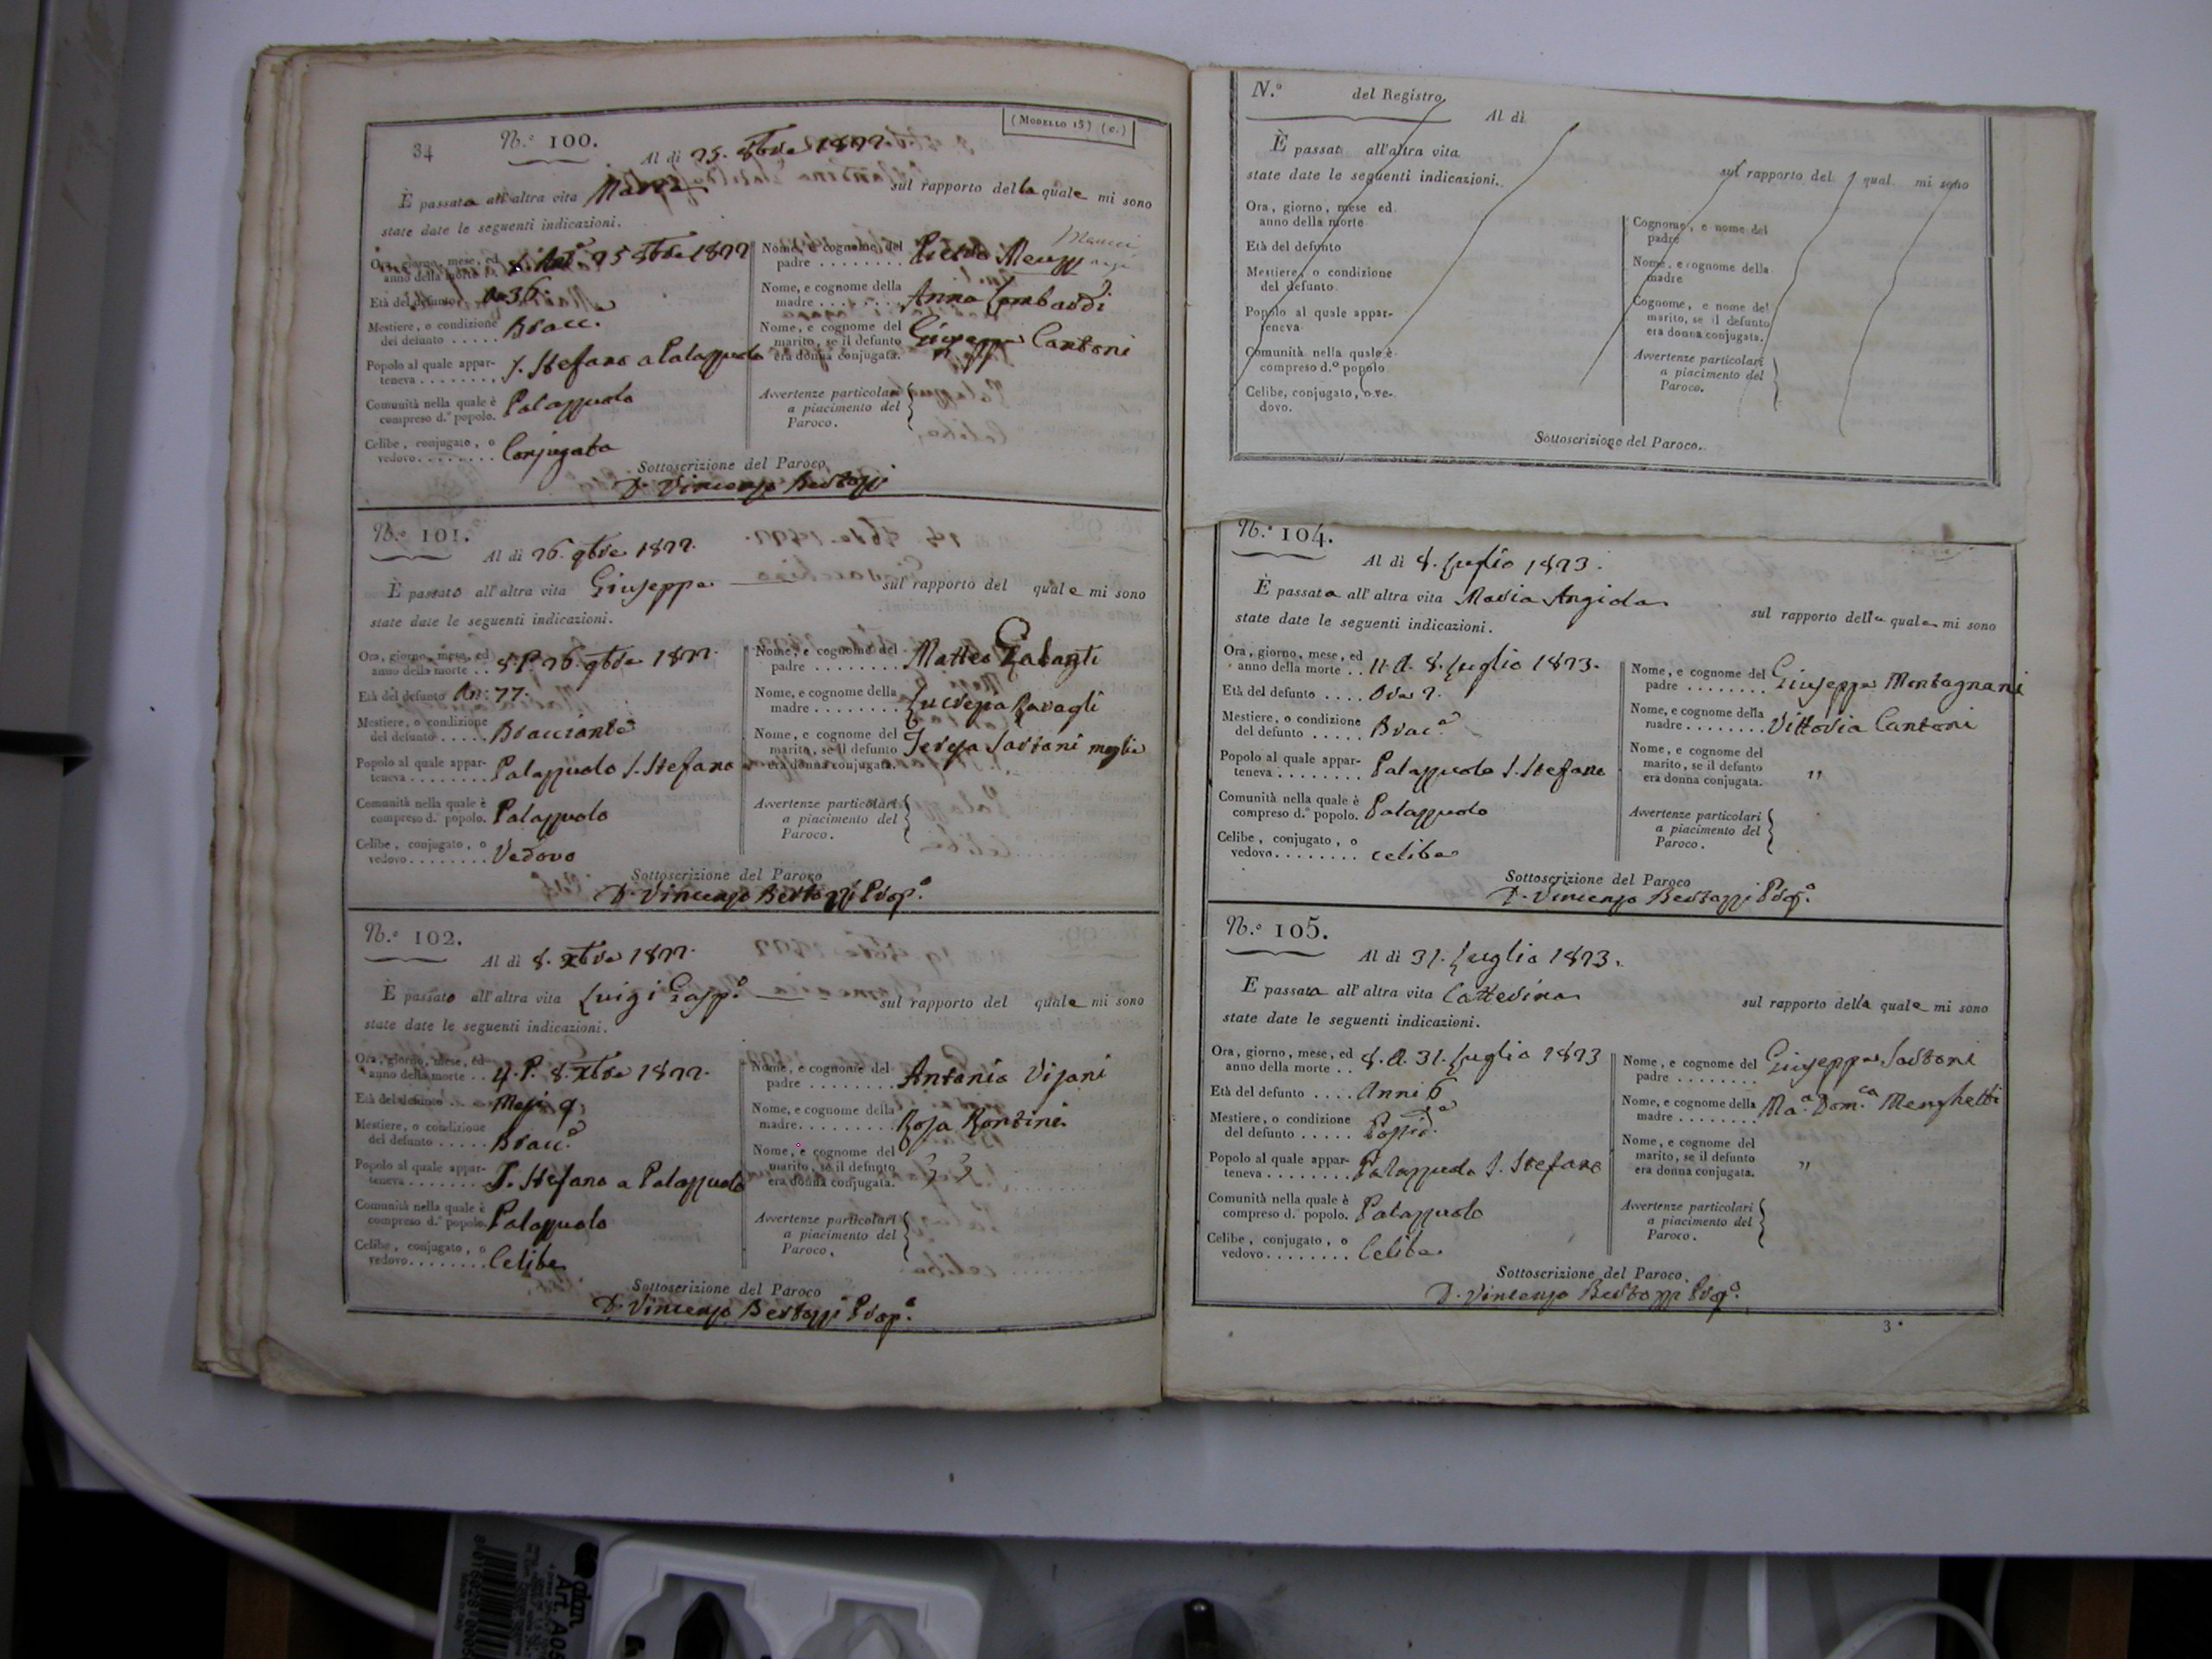 34
N.° 100.
(Modello 15) (c.)
Al dì 25. 8bre 1822.
È passata all'altra vita Maria sul rapporto della quale mi sono
state date le seguenti indicazioni.
Ora, giorno, mese, ed
anno della morte 25 8bre 1822
Età del defunto 36
Mestiere, o condizione
del defunto ..... Bracc.e
Popolo al quale appar-
teneva ........ S. Stefano a Palazzuolo
Comunità nella quale è
compreso d.° popolo. Palazzuolo
Celibe, conjugato, o
vedovo ........ Conjugata
Nome, e cognome del
padre ........ Pietro
Nome, e cognome della
madre ........ Anna Lombardi
Nome, e cognome del
marito, se il defunto
era donna conjugata. Giuseppe Cantoni
Avvertenze particolari
a piacimento del
Paroco.
Sottoscrizione del Paroco
D. Vincenzo Bertozzi
N.° 101.
Al dì 26. 9bre 1822.
È passato all'altra vita Giuseppe sul rapporto del quale mi sono
state date le seguenti indicazioni.
Ora, giorno, mese, ed
anno della morte .. 5. P. 26. 9bre 1822.
Età del defunto An: 77.
Mestiere, o condizione
del defunto ..... Bracciante
Popolo al quale appar-
teneva ........ Palazzuolo S. Stefano
Comunità nella quale è
compreso d.° popolo. Palazzuolo
Celibe, conjugato, o
vedovo ........ Vedovo
Nome, e cognome del
padre ........ Matteo Galanti
Nome, e cognome della
madre ........ Lucrezia Ravagli
Nome, e cognome del
marito, se il defunto
era donna conjugata. Teresa Sartoni moglie
Avvertenze particolari
a piacimento del
Paroco.
Sottoscrizione del Paroco
D. Vincenzo Bertozzi Prop.°
N.° 102.
Al dì 8. Xbre 1822.
È passato all'altra vita Luigi Gasp.e sul rapporto del quale mi sono
state date le seguenti indicazioni.
Ora, giorno, mese, ed
anno della morte .. 4. P. 8. Xbre 1822.
Età del defunto ... Mesi 9
Mestiere, o condizione
del defunto ..... Bracc.e
Popolo al quale appar-
teneva ........ S. Stefano a Palazzuolo
Comunità nella quale è
compreso d.° popolo. Palazzuolo
Celibe, conjugato, o
vedovo ........ Celibe
Nome, e cognome del
padre ........ Antonio Visani
Nome, e cognome della
madre ........ Rosa Rontini
Nome, e cognome del
marito, se il defunto
era donna conjugata.
Avvertenze particolari
a piacimento del
Paroco.
Sottoscrizione del Paroco
D. Vincenzo Bertozzi Prop.°
N.° del Registro
Al dì
È passat all'altra vita
sul rapporto del qual mi sono
state date le seguenti indicazioni.
Ora, giorno, mese ed
anno della morte
Età del defunto
Mestiere, o condizione
del defunto
Popolo al quale appar-
teneva
Comunità nella quale è
compreso d.° popolo
Celibe, conjugato, o ve-
dovo.
Cognome, e nome del
padre
Nome, e cognome della
madre
Cognome, e nome del
marito, se il defunto
era donna conjugata.
Avvertenze particolari
a piacimento del
Paroco.
Sottoscrizione del Paroco.
N.° 104.
Al dì 8. Luglio 1823.
È passata all'altra vita Maria Angiola sul rapporto della quale mi sono
state date le seguenti indicazioni.
Ora, giorno, mese, ed
anno della morte .. 11. A. 8. Luglio 1823.
Età del defunto .... Ore 2.
Mestiere, o condizione
del defunto ..... Brac.e
Popolo al quale appar-
teneva ........ Palazzuolo S. Stefano
Comunità nella quale è
compreso d.° popolo. Palazzuolo
Celibe, conjugato, o
vedovo ........ celibe
Nome, e cognome del
padre ........ Giuseppe Montagnani
Nome, e cognome della
madre ........ Vittoria Cantoni
Nome, e cognome del
marito, se il defunto
era donna conjugata. "
Avvertenze particolari
a piacimento del
Paroco.
Sottoscrizione del Paroco
D. Vincenzo Bertozzi Prop.°
N.° 105.
Al dì 31. Luglio 1823.
È passata all'altra vita Catterina sul rapporto della quale mi sono
state date le seguenti indicazioni.
Ora, giorno, mese, ed
anno della morte .. 8. A. 31. Luglio 1823
Età del defunto .... Anni 6
Mestiere, o condizione
del defunto ..... Possid.e
Popolo al quale appar-
teneva ........ Palazzuolo S. Stefano
Comunità nella quale è
compreso d.° popolo. Palazzuolo
Celibe, conjugato, o
vedovo ........ Celibe
Nome, e cognome del
padre ........ Giuseppe Sartoni
Nome, e cognome della
madre ........ Ma.a Dom.ca Menghetti
Nome, e cognome del
marito, se il defunto
era donna conjugata. "
Avvertenze particolari
a piacimento del
Paroco.
Sottoscrizione del Paroco.
D. Vincenzo Bertozzi Prop.°
3*
dan
Art. A05